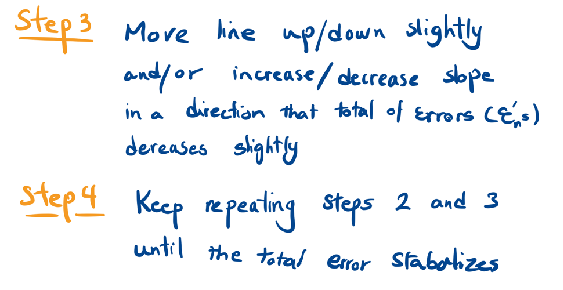 Step 3 Move line up/down slightly
and/or increase/decrease slope
in a direction that total of errors (ε'ₙs)
dereases slightly
Step 4 Keep repeating steps 2 and 3
until the total error stabalizes